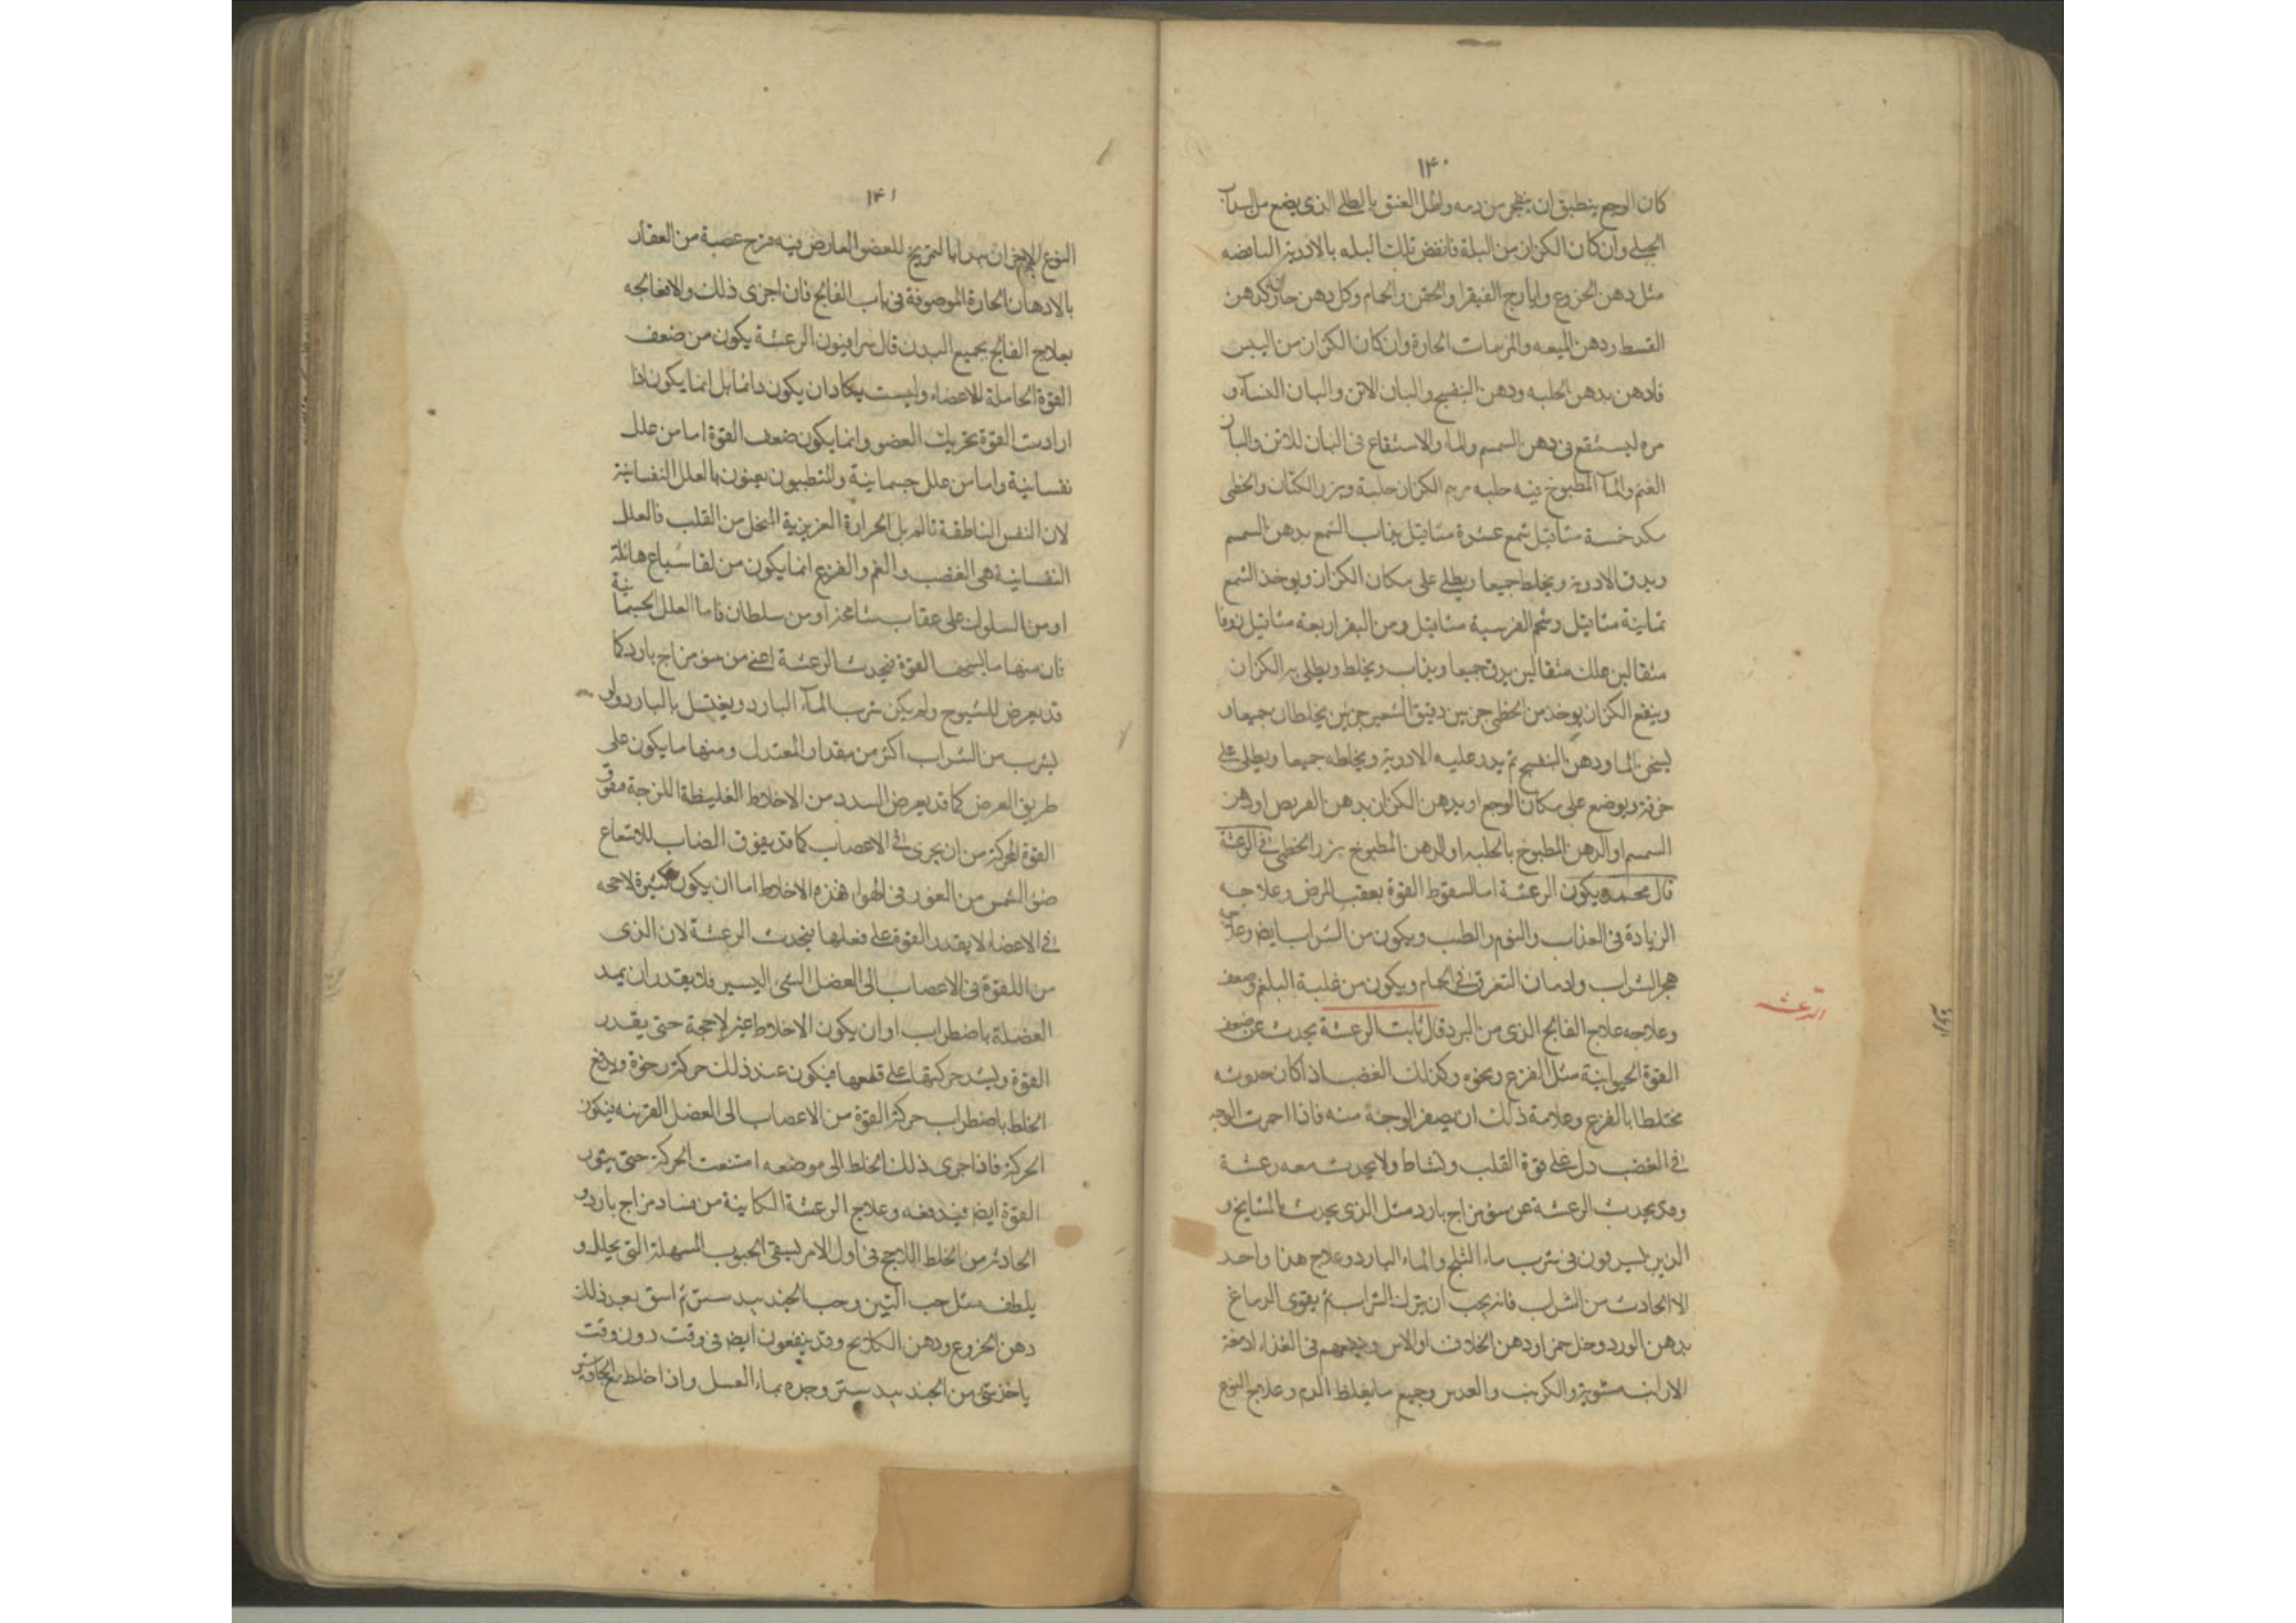 ١۴٠
كان الوجع ينطبق ان ينفجر من دمه واطل العنق بالطلى الذى يضع من السآ
الجبلى وان كان الكزاز من البلة فانفض تلك البله بالادوية النافضه
مثل دهن الخروع وايارج الفيقرا والحقن والحمام وكل دهن حار كدهن
القسط ودهن الميعه والمرخات الحارة وان كان الكزاز من اليبس
فادهن بدهن الحلبه ودهن البنفسج والبان الاتن والبان النسآء و
مره ليستنقع فى دهن السمسم والماء والاستنقاع فى البان للاتن والبان
الغنم والمآ المطبوخ فيه حلبه مرهم الكزاز حلبة وبزر الكتان والخطمى
مكد خمسة مثاقيل شمع عشرة مثاقيل يذاب الشمع بدهن السمسم
ويدق الادوية ويخلط جميعا ويطلى على مكان الكزاز ويوخذ الشمع
ثمانية مثاقيل وشحم الفرسية مثاقيل ومن البقر اربعة مثاقيل زوفا
مثقالين علك مثقالين يدق جميعا ويذاب ويخلط ويطلى به الكزاز
وينفع الكزاز يوخذ من الخطمى جزين دقيق الشعير جزين يخلطان جميعا و
يسخن الما ودهن البنفسج ثم يدر عليه الادوية ويخلطه جميعا ويطلى على
خرقة ويوضع على مكان الوجع او بدهن الكزاز بدهن القريص او دهن
السمسم او الدهن المطبوخ بالحلبه او الدهن المطبوخ ببزر الخطمى فى الرعشة
قال محمد ويكون الرعشة اما لسقوط القوة بعقب المرض وعلاجه
الزيادة فى العذاب والنوم والطيب ويكون من الشراب ايض وعلاجه
هجر الشراب وادمان التعرق فى الحمام ويكون من غلبة البلغم وضعف
وعلاجه علاج الفالج الذى من البرد قال ثابت الرعشة يحدث عن ضعف
القوة الحيوانية مثل الفزع ونحوه وكذلك الغضب اذا كان حدوثه
مختلطا بالفزع وعلامة ذلك ان يصفر الوجنة منه فاذا احمرت الوجه
فى الغضب دل على قوة القلب ونشاط ولا يحدث معه رعشة
وقد يحدث الرعشة عن سوء مزاج بارد مثل الذى يحدث بالمشايخ و
الذين يسرفون فى شرب ماء الثلج والماء البارد وعلاج هذا واحد
الا الحادث من الشراب فانه يجب ان يترك الشراب ثم يقوى الدماغ
بدهن الورد وخل خمر او دهن الخلاف او الاس وينفعهم فى الغذاء ادمغة
الارانب مشوية والكرنب والعدس وجميع ما يغلظ الدم وعلاج النوع
الرعشة
١۴١
النوع الاخران يبدا بالتمريخ للعضو العارض فيه مزح عصبة من الفقار
بالادهان الحارة الموصوفة فى باب الفالج فان اجزى ذلك والا فعالجه
بعلاج الفالج بجميع البدن قال سرافيون الرعشة يكون من ضعف
القوة الحاملة للاعضاء وليست يكاد ان يكون دائما بل انما يكون اذا
ارادت القوة تحريك العضو وانما يكون ضعف القوة اما من علل
نفسانية واما من علل جسمانية والمتطببون يعنون بالعلل النفسانية
لان النفس الناطقة تالم بل الحرارة الغريزية التحل من القلب فالعلل
النفسانية هى الغضب والغم والفزع انما يكون من لقا سباع هائلة
او من السلوك على عقاب شامخة او من سلطان فاما العلل الجسمانية
فان منها ما يسحنها القوة فيحدث الرعشة اعنى من سوء مزاج بارد كما
قد يعرض للشيوخ ولم يكن شرب المآء البارد ويغتسل بالبارد ولو
يشرب من الشراب اكثر من مقدار المعتدل ومنها ما يكون على
طريق العرض كما قد يعرض السدد من الاخلاط الغليظة اللزجة مفوق
القوة المحركة من ان يجرى فى الاعصاب كما قد يعوق الضباب للامتعاع
ضوء الشمس من العنور فى الهواء فهذه الاخلاط اما ان يكون كثيرة لاحجه
فى الاعضاء لا يقدر القوة على فعلها فيحدث الرعشة لان الذى
من اللقوة فى الاعصاب الى العضل الشى اليسير فلا يقدر ان يمد
العضلة باضطراب او ان يكون الاخلاط غير لاحجة حتى يقدر
القوة وليشد حركتها على قلعها فيكون عند ذلك حركة رخوة ويدفع
الخلط باضطراب حركة القوة من الاعصاب الى العضل القرينه فيكون
الحركة فاذا جرى ذلك الخلط الى موضعه امتنعت الحركة حتى يثور
القوة ايض فيدفعه وعلاج الرعشة الكاينة من فساد مزاج بارد و
الحادثة من الخلط اللاحج فى اول الامر ليسقى الحبوب المسهلة التى يحلل و
يلطف مثل حب النتن وحب الجندبيدستر ثم اسق بعد ذلك
دهن الخروع ودهن الكلكلانج وقد ينفعون ايض فى وقت دون وقت
ياخذ شى من الجندبيدستر وحده بماء العسل واذا خلط مع الجاوشير